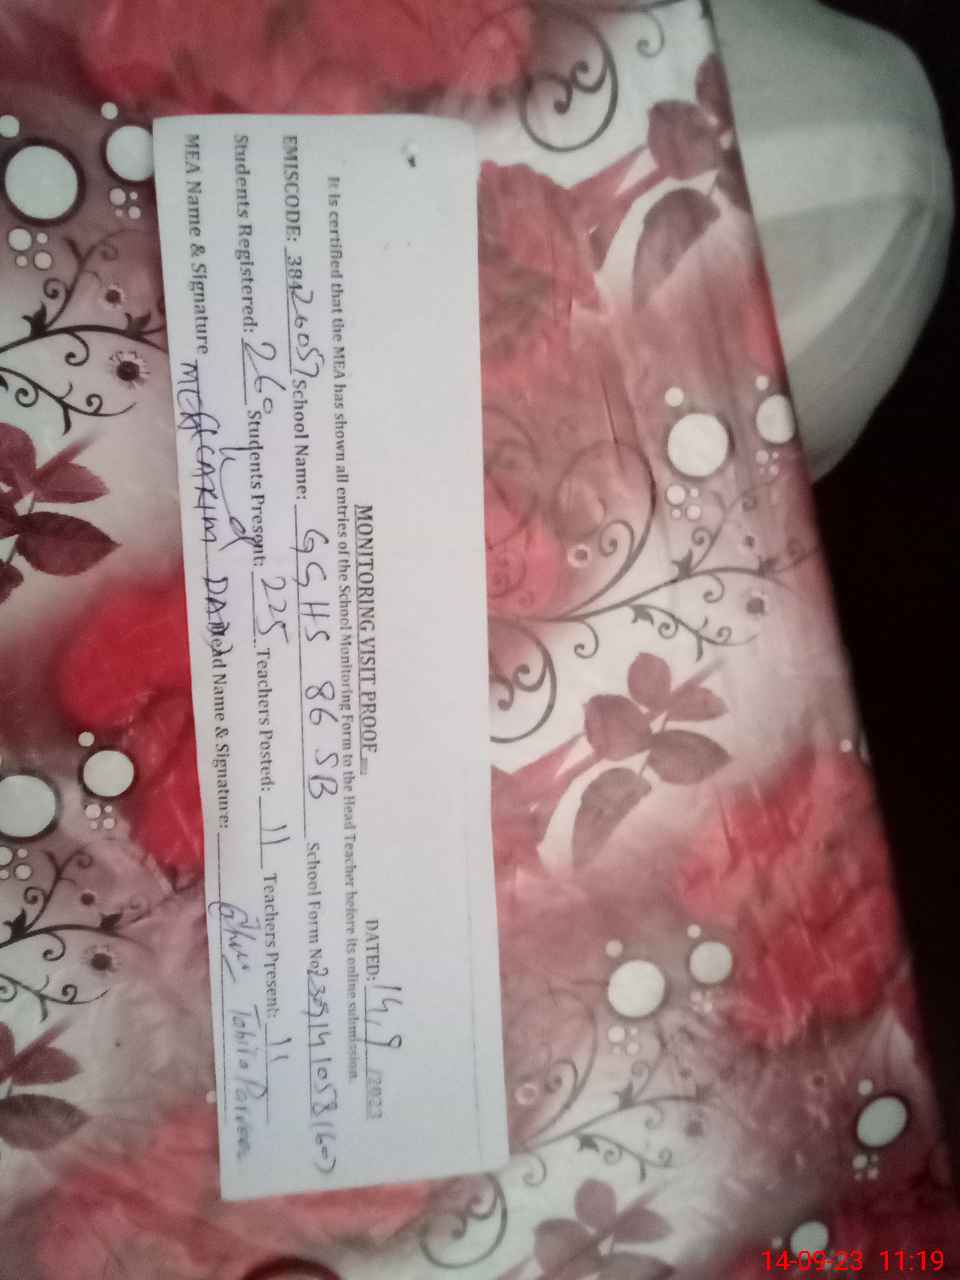 MONITORING VISIT PROOF
DATED: 14,9 /2023
It is certified that the MEA has shown all entries of the School Monitoring Form to the Head Teacher before its online submission.
EMISCODE: 38426057 School Name: GGHS 86 SB School Form No 2309141058(60)
Students Registered: 260 Students Present: 225 Teachers Posted: 11 Teachers Present: 11
MEA Name & Signature DAD Head Name & Signature: Tahira Parveen
14-09-23 11:19